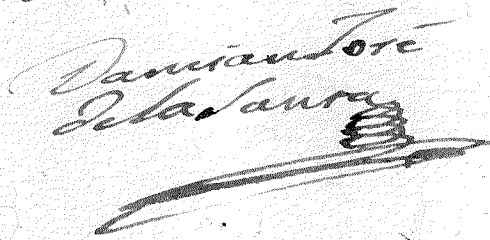 Damian José
de la Santa